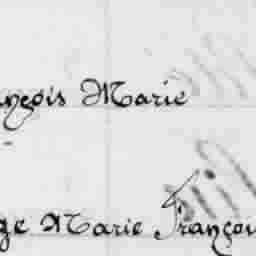 nçois Marie
ge Marie Françoi